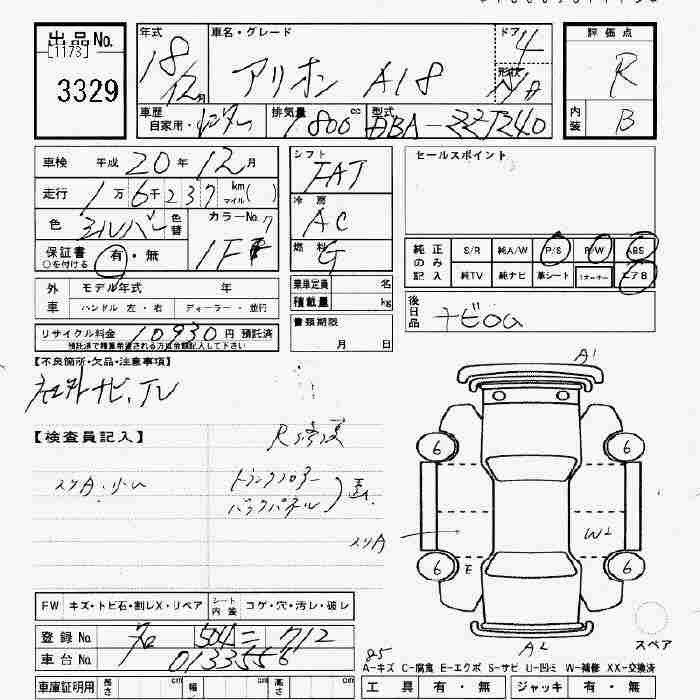 出品No.
[1173]
3329
年式
18
12月
車名・グレード
アリオン A18
ドア
4
形状
評価点
R
内装
B
車歴
自家用・
排気量 cc
1800
型式
DBA-ZZT240
車検 平成 20 年 12 月
走行 1 万 6 千 237 km マイル ( )
色 シルバー 色替 カラーNo.
1F7
保証書 有・無
○を付ける
シフト
FAT
冷房
AC
燃料
G
セールスポイント
純正のみ記入
S/R 純A/W P/S P/W ABS
純TV 純ナビ 革シート 1オーナー エアB
外車
モデル年式 年
ハンドル 左・右 ディーラー・並行
乗車定員 名
積載量 kg
後日品
ナビロム
リサイクル料金 10930 円 預託済
預託済で精算希望される方は金額記入して下さい
書類期限
月 日
【不良箇所・欠品・注意事項】
社外ナビ、TV
【検査員記入】
R修復
スリA・小凹
トランクフロアー
バックパネル
A1
6 6
スリA
W2
6 E 6
A2
スペア
FW キズ・トビ石・割レX・リペア シート内装 コゲ・穴・汚レ・破レ
登録No.
504 712
車台No. 0133556
A-キズ C-腐食 E-エクボ S-サビ U-凹ミ W-補修 XX-交換済
車庫証明用 長さ cm 幅 cm 高さ cm
工具 有・無 ジャッキ 有・無